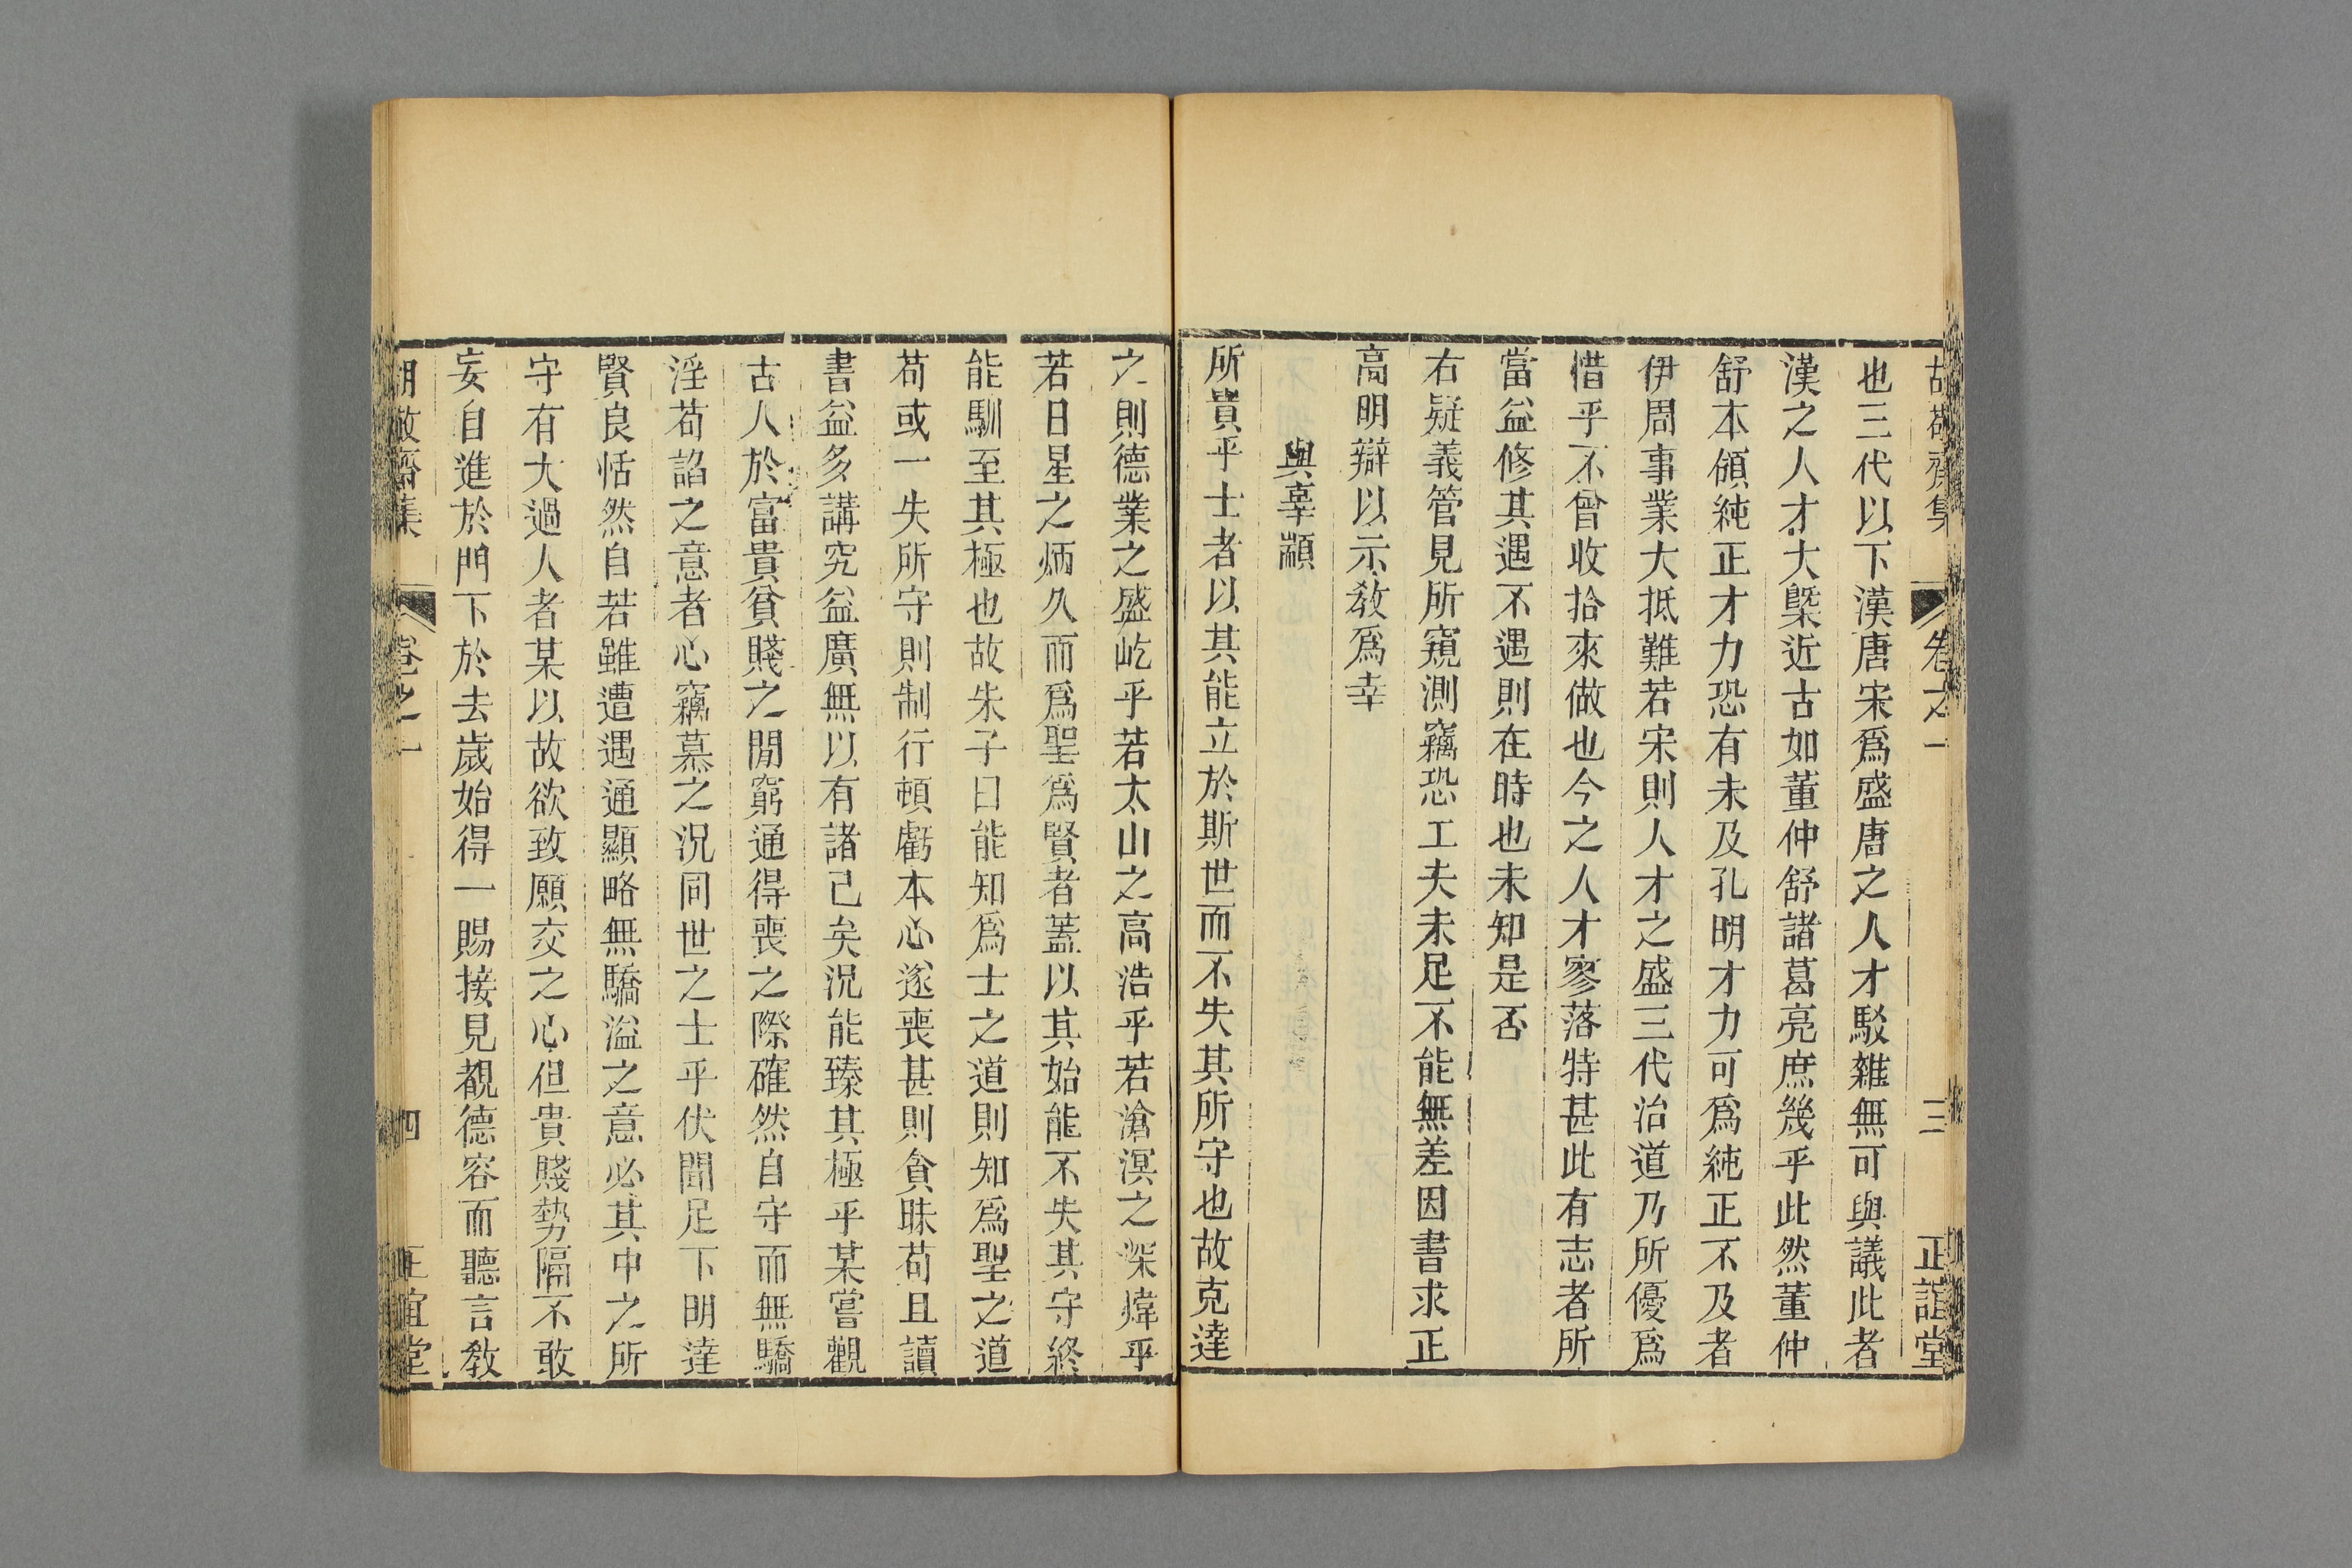 胡敬齋集 卷之一 三 正誼堂
也三代以下漢唐宋爲盛唐之人才駁雜無可與議此者
漢之人才大槩近古如董仲舒諸葛亮庶幾乎此然董仲
舒本領純正才力恐有未及孔明才力可爲純正不及者
伊周事業大抵難若宋則人才之盛三代治道乃所優爲
惜乎不曾收拾來做也今之人才寥落特甚此有志者所
當益修其遇不遇則在時也未知是否
右疑義管見所窺測竊恐工夫未足不能無差因書求正
高明辯以示教爲幸
與辜顓
所貴乎士者以其能立於斯世而不失其所守也故克達
之則德業之盛屹乎若太山之高浩乎若滄溟之深煒乎
若日星之炳久而爲聖爲賢者蓋以其始能不失其守終
能馴至其極也故朱子曰能知爲士之道則知爲聖之道
苟或一失所守則制行頓虧本心遂喪甚則貪昧苟且讀
書益多講究益廣無以有諸己矣況能臻其極乎某嘗觀
古人於富貴貧賤之閒窮通得喪之際確然自守而無驕
淫苟諂之意者心竊慕之況同世之士乎伏聞足下明達
賢良恬然自若雖遭遇通顯略無驕溢之意必其中之所
守有大過人者某以故欲致願交之心但貴賤勢隔不敢
妄自進於門下於去歲始得一賜接見覩德容而聽言教
胡敬齋集 卷之一 四 正誼堂